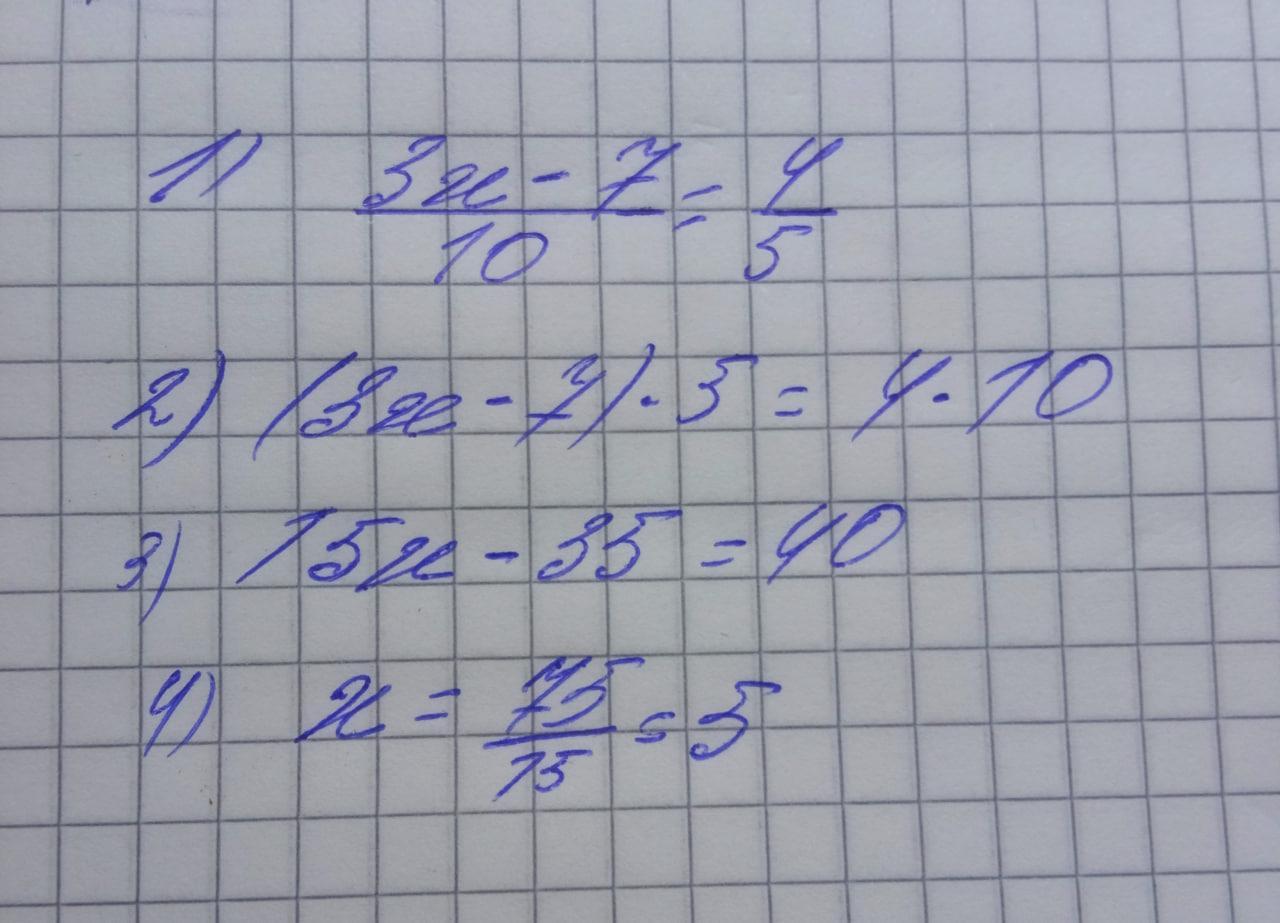 1) (3x - 7)/10 = 4/5
2) (3x - 7) · 5 = 4 · 10
3) 15x - 35 = 40
4) x = 75/15 = 5